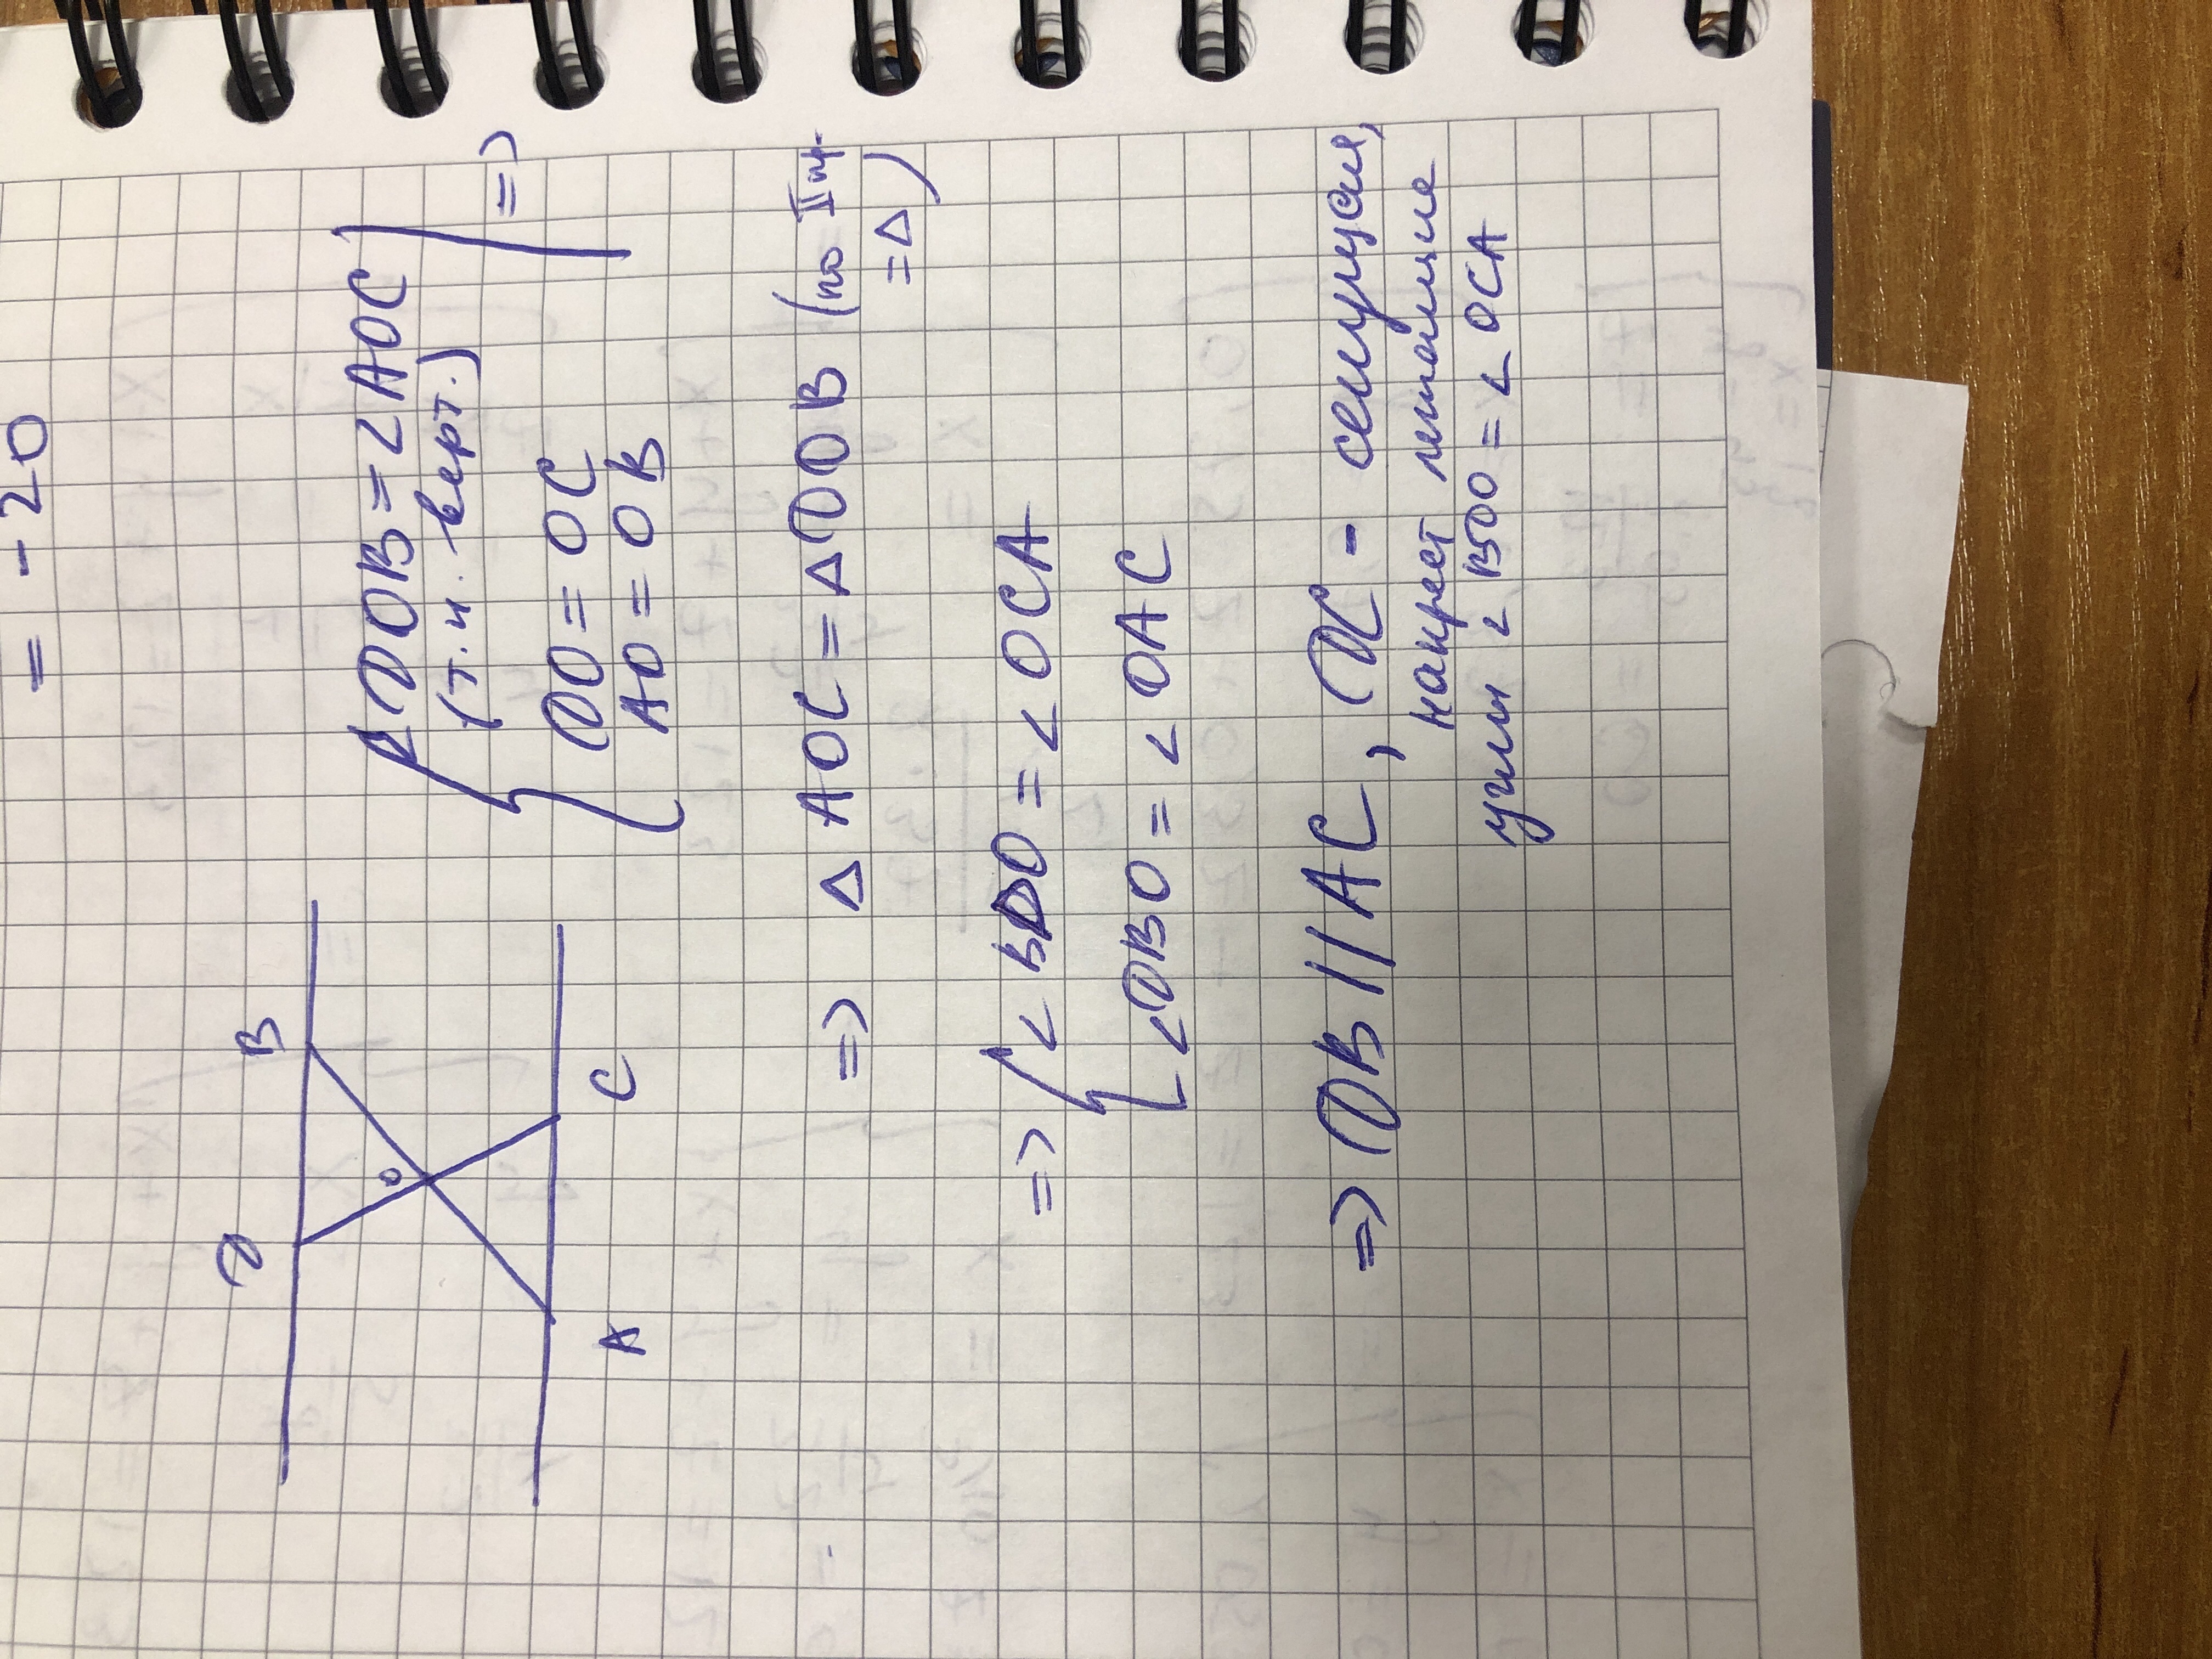 = - 20
D B
O
A C
∠DOB = ∠AOC
(т.н. верт.)
DO = OC
AO = OB
=>
=> Δ AOC = Δ DOB (по II пр.
= Δ)
=> ∠ BDO = ∠ OCA
∠DBO = ∠ OAC
=> DB || AC, DC - секущая,
накрест лежащие
углы ∠ BDO = ∠ OCA